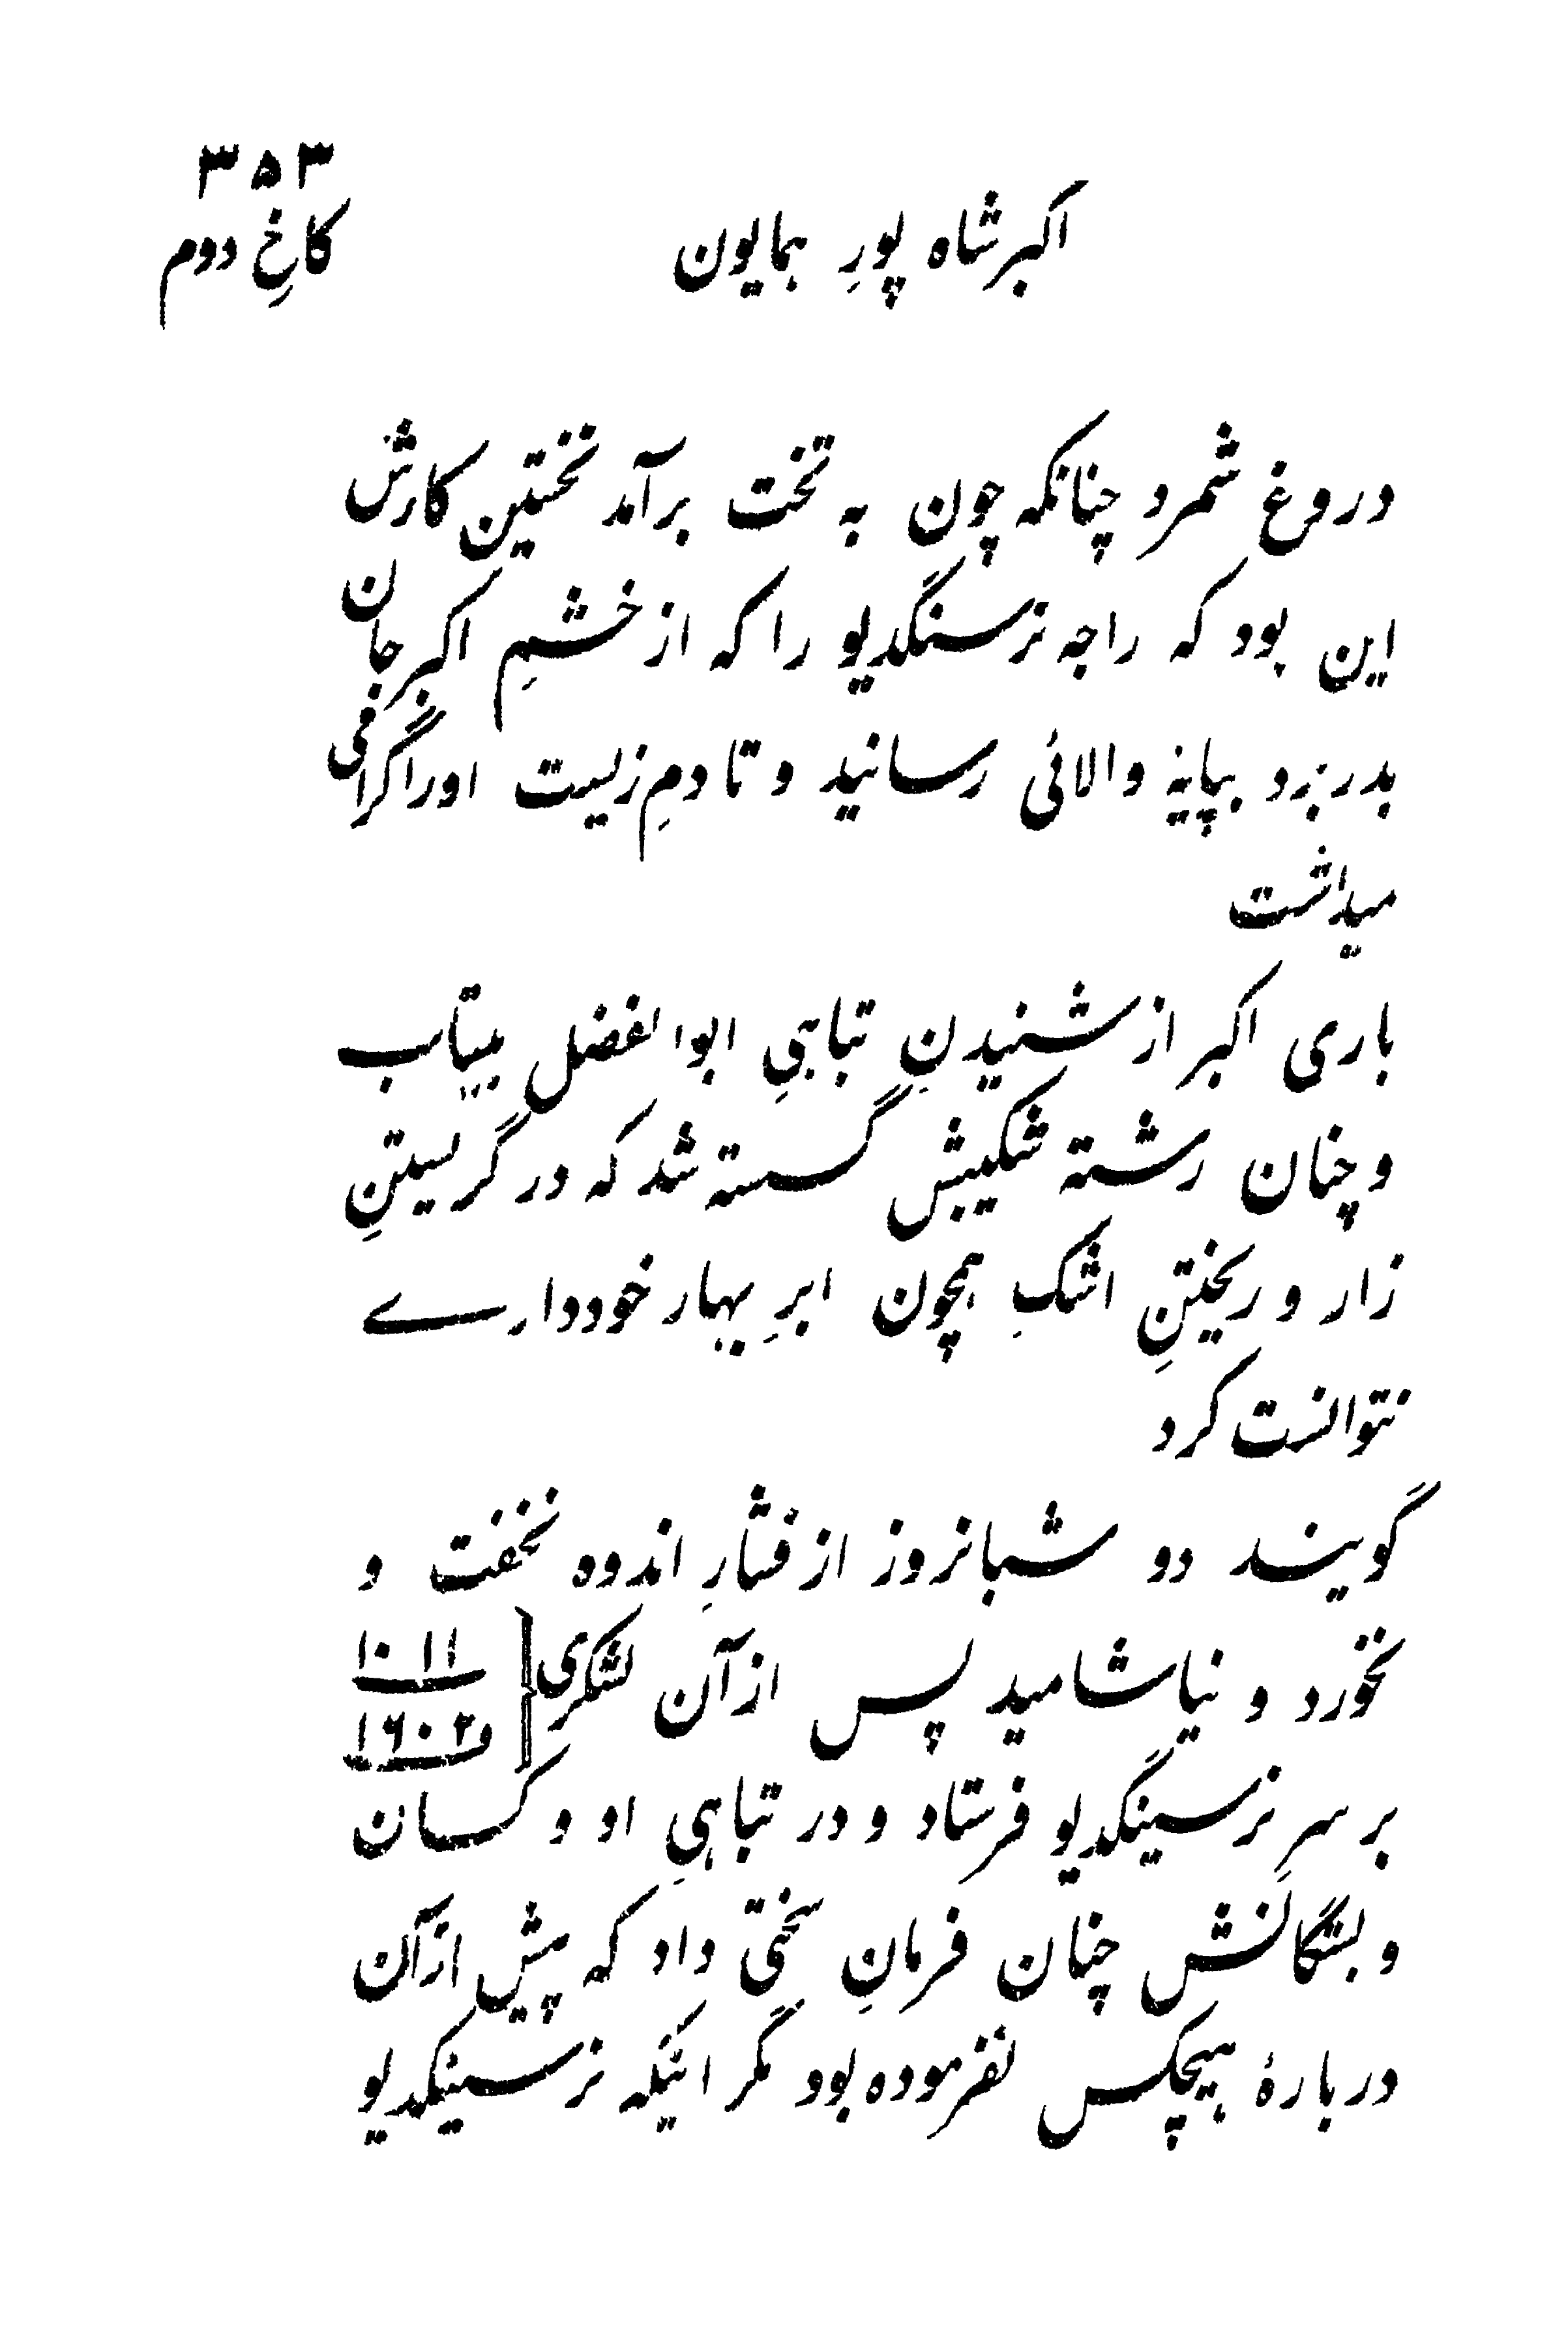 ۳۵۳
اکبر شاه پورِ همایون
کاخِ دوم
دروغ شمرد چنانکه چون به تخت برآمد نخستین کارش
این بود که راجه نرسنگدیو را که از خشمِ اکبر جان
بدر برد بپایهٔ والائی رسانید و تا دمِ زیست اورا گرامی
میداشت
باری اکبر از شنیدنِ تباهیِ ابوالفضل بیتاب
و چنان رشته شکیبش گسسته شد که در گریستنِ
زار و ریختنِ اشکِ همچون ابرِ بهار خودداری
نتوانست کرد
گویند دو شبانروز از فشارِ اندوه نخفت و
نخورد و نیاشامید پس از آن لشکری ۱۰۱۱
۱۶۰۲
بر سرِ نرسینگدیو فرستاد و در تباهیِ او و کسان
و بستگانش چنان فرمانِ سختی داد که پیش از آن
دربارهٔ هیچکس نفرموده بود مگر اینکه نرسینگدیو